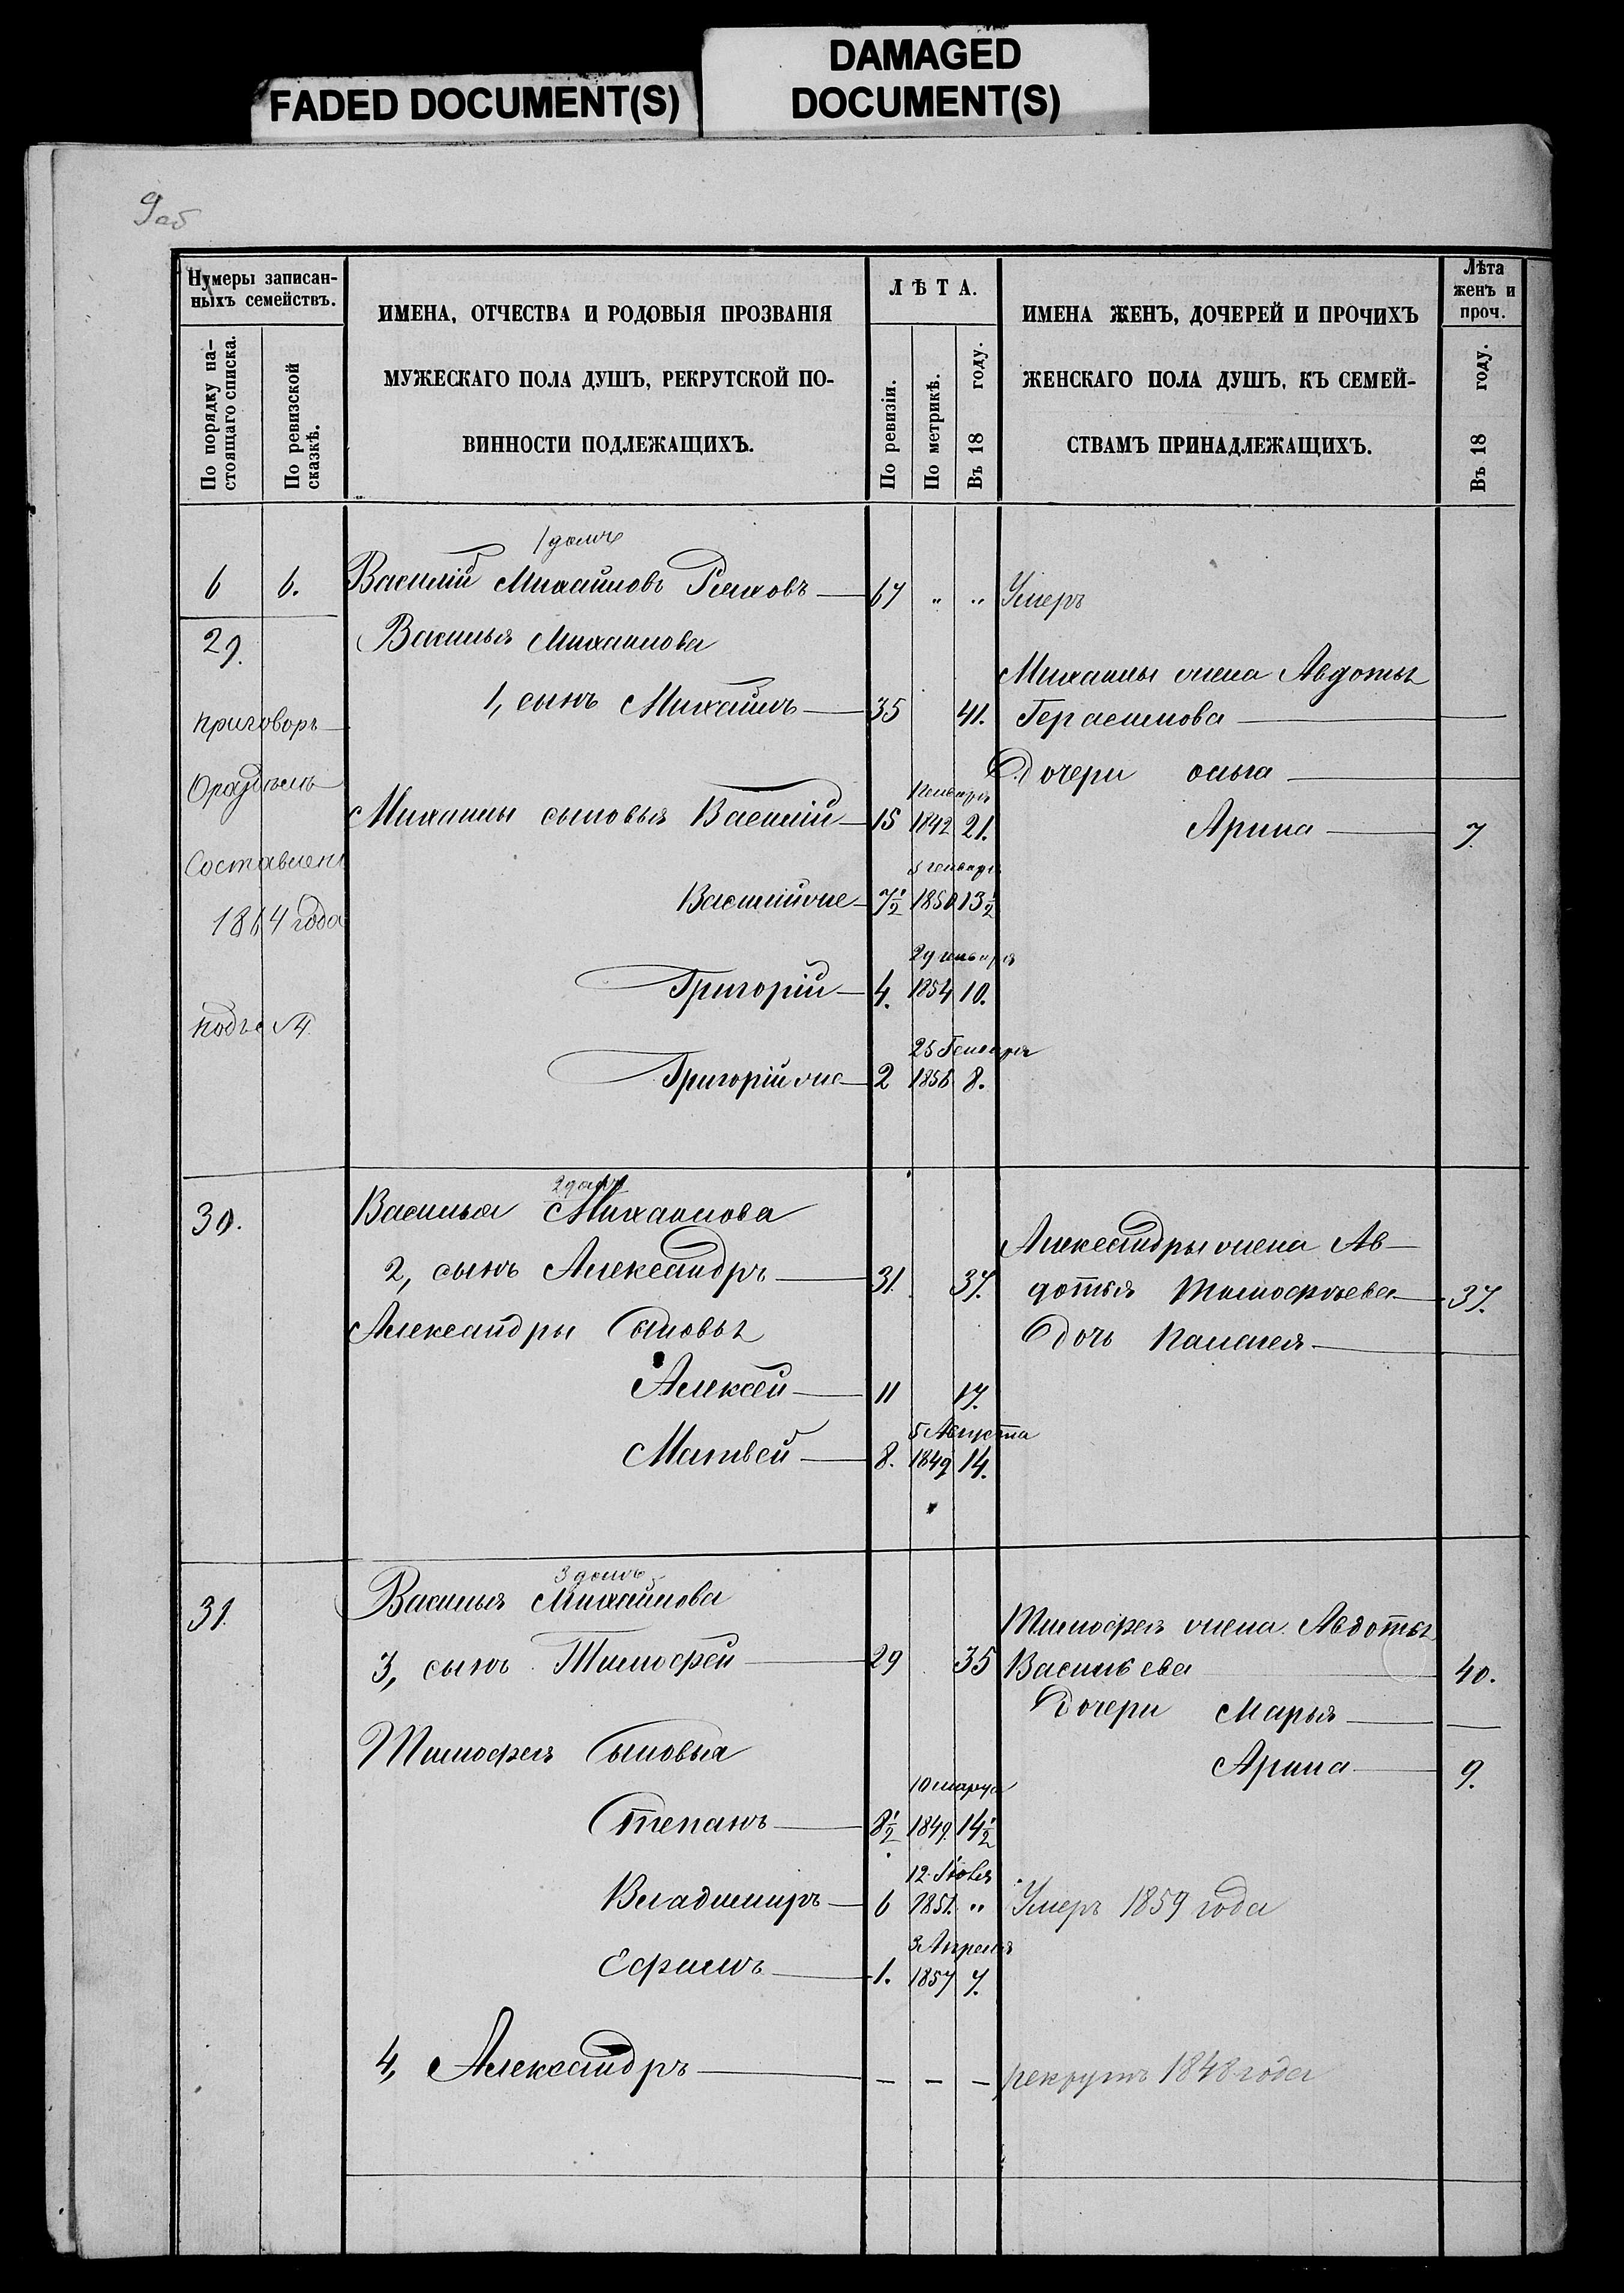 FADED DOCUMENT(S)
DAMAGED
DOCUMENT(S)
9об
Нумеры записан-
ныхъ семействъ.
По порядку на-
стоящаго списка.
По ревизской
сказкѣ.
ИМЕНА, ОТЧЕСТВА И РОДОВЫЯ ПРОЗВАНІЯ
МУЖЕСКАГО ПОЛА ДУШЪ, РЕКРУТСКОЙ ПО-
ВИННОСТИ ПОДЛЕЖАЩИХЪ.
ЛѢТА.
По ревизіи.
По метрикѣ.
Въ 18 году.
ИМЕНА ЖЕНЪ, ДОЧЕРЕЙ И ПРОЧИХЪ
ЖЕНСКАГО ПОЛА ДУШЪ, КЪ СЕМЕЙ-
СТВАМЪ ПРИНАДЛЕЖАЩИХЪ.
Лѣта
женъ и
проч.
Въ 18 году.
1 домъ
6 6. Василій Михайловъ 67 " " Умеръ
29. Василья Михаилова
Михаилы жена Авдотья
1, сынъ Михаилъ 35 41. Герасимова
приговоръ
Дочери ольга
Оразделѣ
Генваря
Михаилы сыновья Василій 15 1842 21. Арина 7
Составлен
5 генваря
Василійже 7½ 1850 13½
1864 года
29 генваря
Григорій 4. 1854 10.
подъ № 4
25 Генваря
Григорійже 2 1856 8.
2 домъ
30. Василья Михаилова
Александры жена Ав-
2, сынъ Александръ 31. 37. дотья Тимофѣева 37.
Александры Сыновья дочь Палагея
Алексѣй 11 17.
5 Августа
Матвей 8. 1849 14.
3 домъ
31. Василья Михайлова
Тимофея жена Авдотья
3, сынъ Тимофей 29 35 Васильева 40.
Дочери Марья
Тимофея Сыновья
Арина 9.
10 марта
Степанъ 8½ 1849. 14½
12 Іюля
Владимиръ 6 1851 " Умеръ 1859 года
3 Апреля
Ефимъ 1. 1857 7.
4, Александръ – – – рекрутъ 1848 года